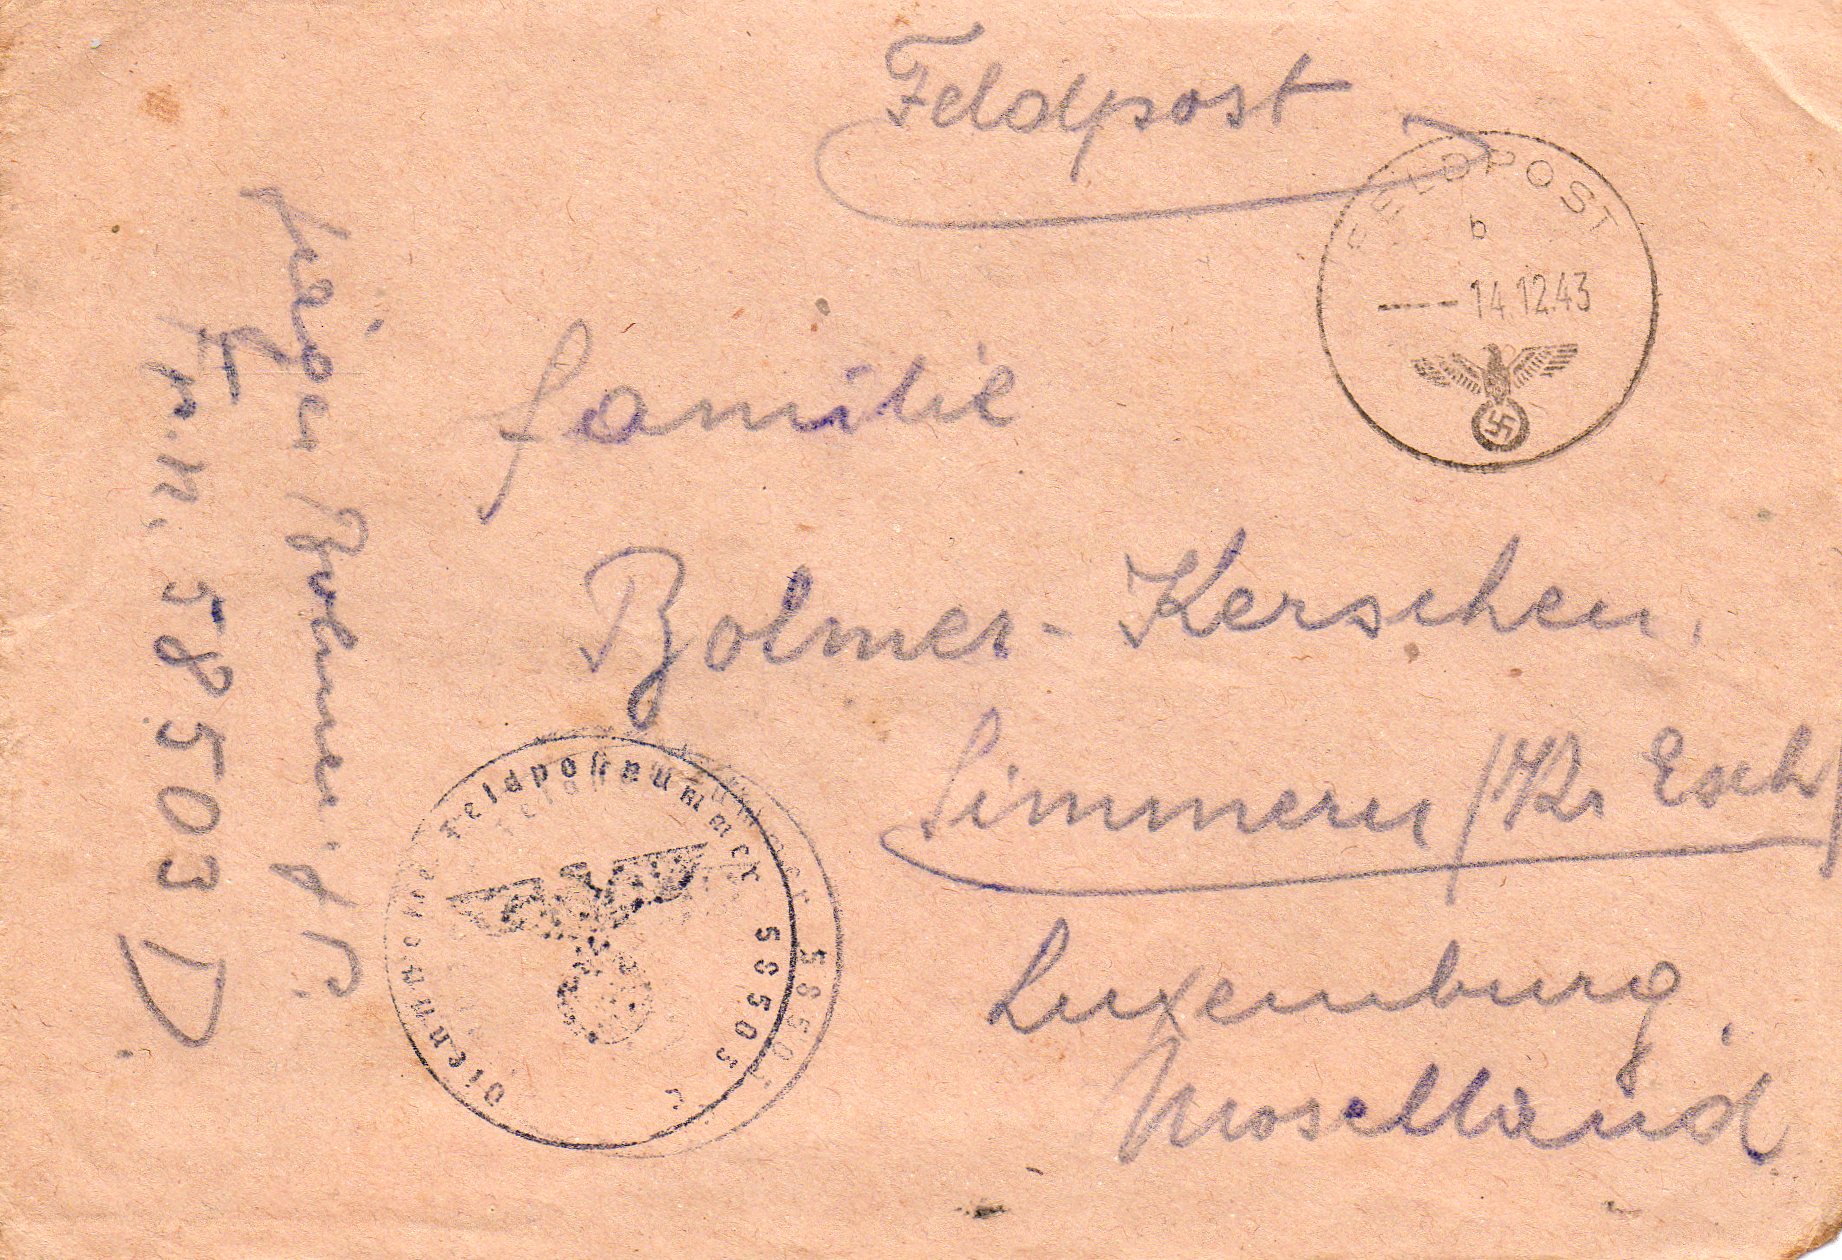 Feldpost
FELDPOST
b
14.12.43
Familie
Bolmer-Kerschen,
Simmern /Kr Esch/
Luxemburg,
Moselland
Jäger Bolmer
F.P.N. 58503 D
Feldpostnummer 58503 C